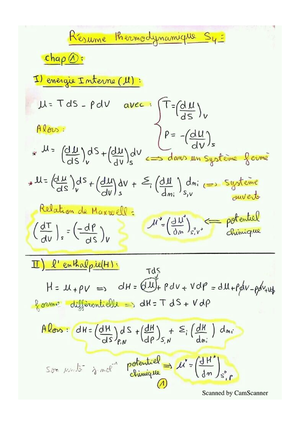 Résumé thermodynamique S4 :
chap ① :
I) energie Interne (U) :
U = T dS - P dV avec : { T = (dU/dS)_V
Alors : P = -(dU/dV)_S
* U = (dU/dS)_V dS + (dU/dV)_S dV ⟺ dans en Système fermé
* U = (dU/dS) dS + (dU/dV) dV + Σi (dU/dni)_{S,V} dni ⟺ Système ouvert
Relation de Maxwell :
(dT/dV)_S = (-dP/dS)_V
μ* = (dU*/dn)_{S,V} ⟸ potentiel chimique
II) l'enthalpie (H) :
TdS
H = U + PV ⟹ dH = (dU) + PdV + VdP = dU + PdV
forme différentielle ⟹ dH = T dS + V dP
Alors : dH = (dH/dS)_{P,N} dS + (dH/dP)_{S,N} + Σi (dH/dni) dni
Son unité potentiel chimique ⟹ μ* = (dH*/dn)_{S,P}
①
Scanned by CamScanner